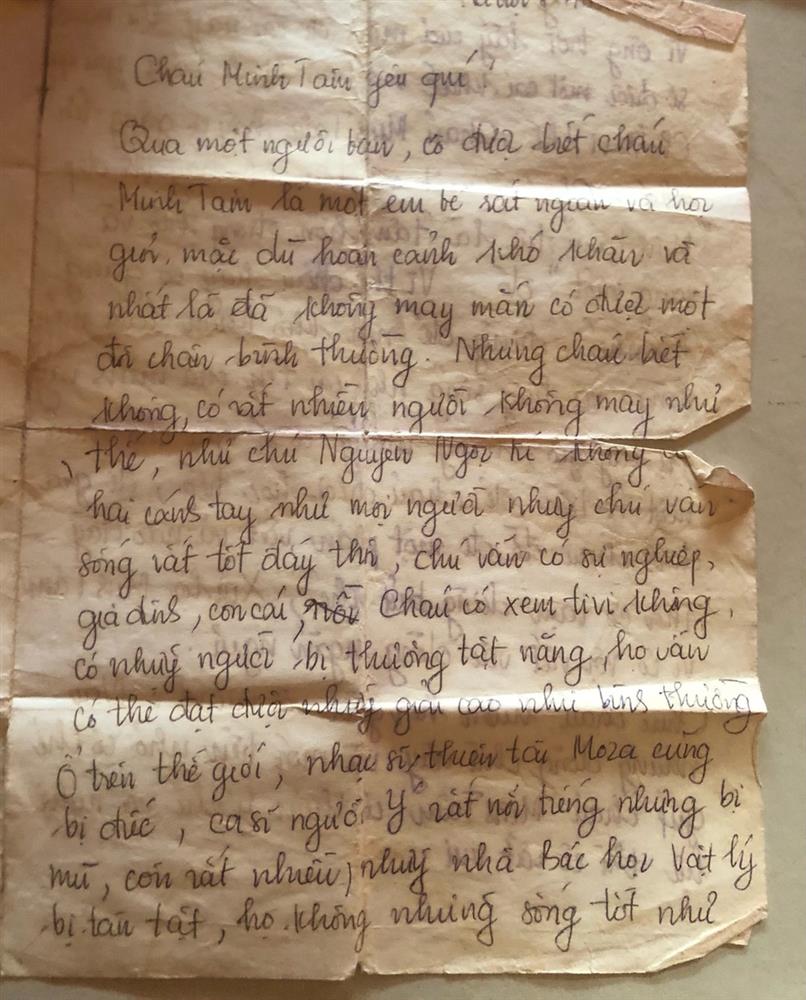 Cháu Minh Tâm yêu quí
Qua một người bạn, cô được biết cháu
Minh Tâm là một em bé rất ngoan và học
giỏi, mặc dù hoàn cảnh khó khăn và
nhất là đã không may mắn có được một
đôi chân bình thường. Nhưng cháu biết
không, có rất nhiều người không may như
thế, như chú Nguyễn Ngọc Kí không
hai cánh tay như mọi người nhưg chú vẫn
sống rất tốt đấy thôi, chú vẫn có sự nghiệp,
gia đình, con cái, Cháu có xem tivi không,
có nhữg người bị thương tật nặng, họ vẫn
có thể đạt được nhữg giải cao như bình thường
Ở trên thế giới, nhạc sĩ thiên tài Moza cũng
bị điếc, ca sĩ người Ý rất nổi tiếng nhưng bị
mù, còn rất nhiều nhữg nhà Bác học Vật lý
bị tàn tật, họ không những sống tốt như